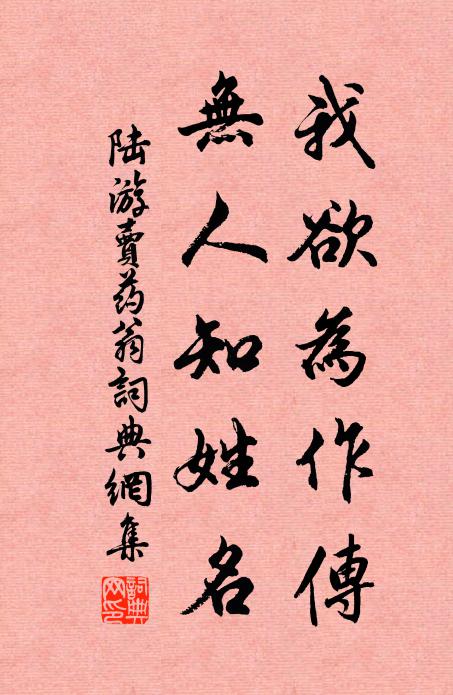 我欲為作傳
無人知姓名
陆游賣药翁詞典網集
詞典网印